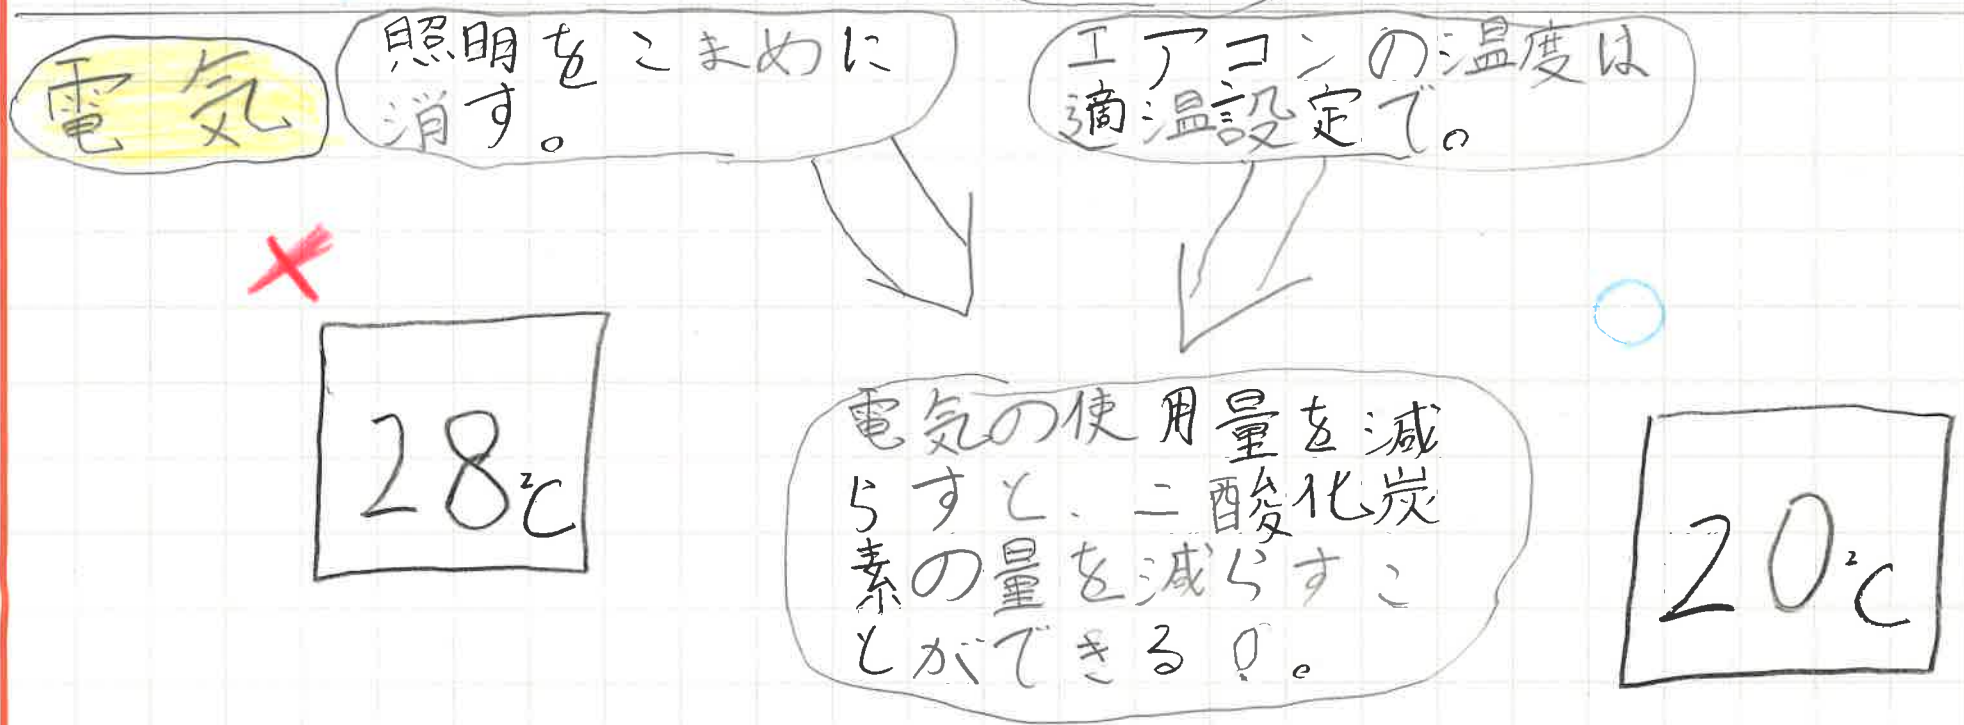 電気
照明をこまめに
消す。
エアコンの温度は
適温設定で。
28℃
電気の使用量を減
らすと、二酸化炭
素の量を減らすこ
とができる!。
20℃